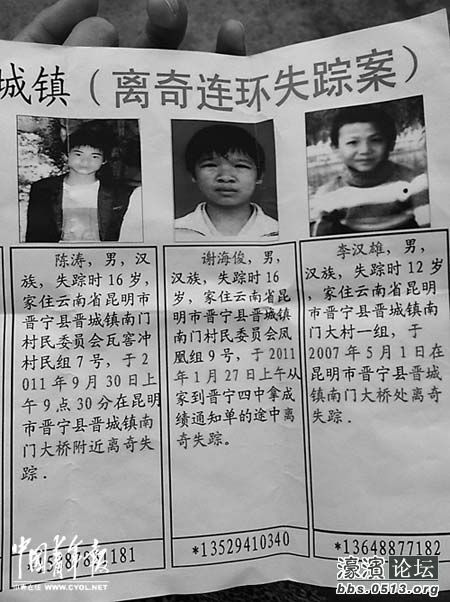 城镇（离奇连环失踪案）
陈涛，男，汉
族，失踪时 16 岁，
家住云南省昆明
市晋宁县晋城镇
南门村民委员会
瓦窑冲
村民组 7 号，于 2
011 年 9 月 30 日上
午 9 点 30 分在昆明
市晋宁县晋城镇南
门大桥附近离奇失
踪．
181
谢海俊，男，
汉族，失踪时 16
岁，家住云南省昆
明市晋宁县晋城镇
南门村民委员会凤
凰组 9 号，于 2011
年 1 月 27 日上午从
家到晋宁四中拿成
绩通知单的途中离
奇失踪。
*13529410340
李汉雄，男，
汉族，失踪时 12 岁
，家住云南省昆明
市晋宁县晋城镇南
门大村一组，于
2007 年 5 月 1 日在
昆明市晋宁县晋城
镇南门大桥处离奇
失踪．
*13648877182
中国青年报
中青在线 WWW.CYOL.NET
濠滨论坛
bbs.0513.org